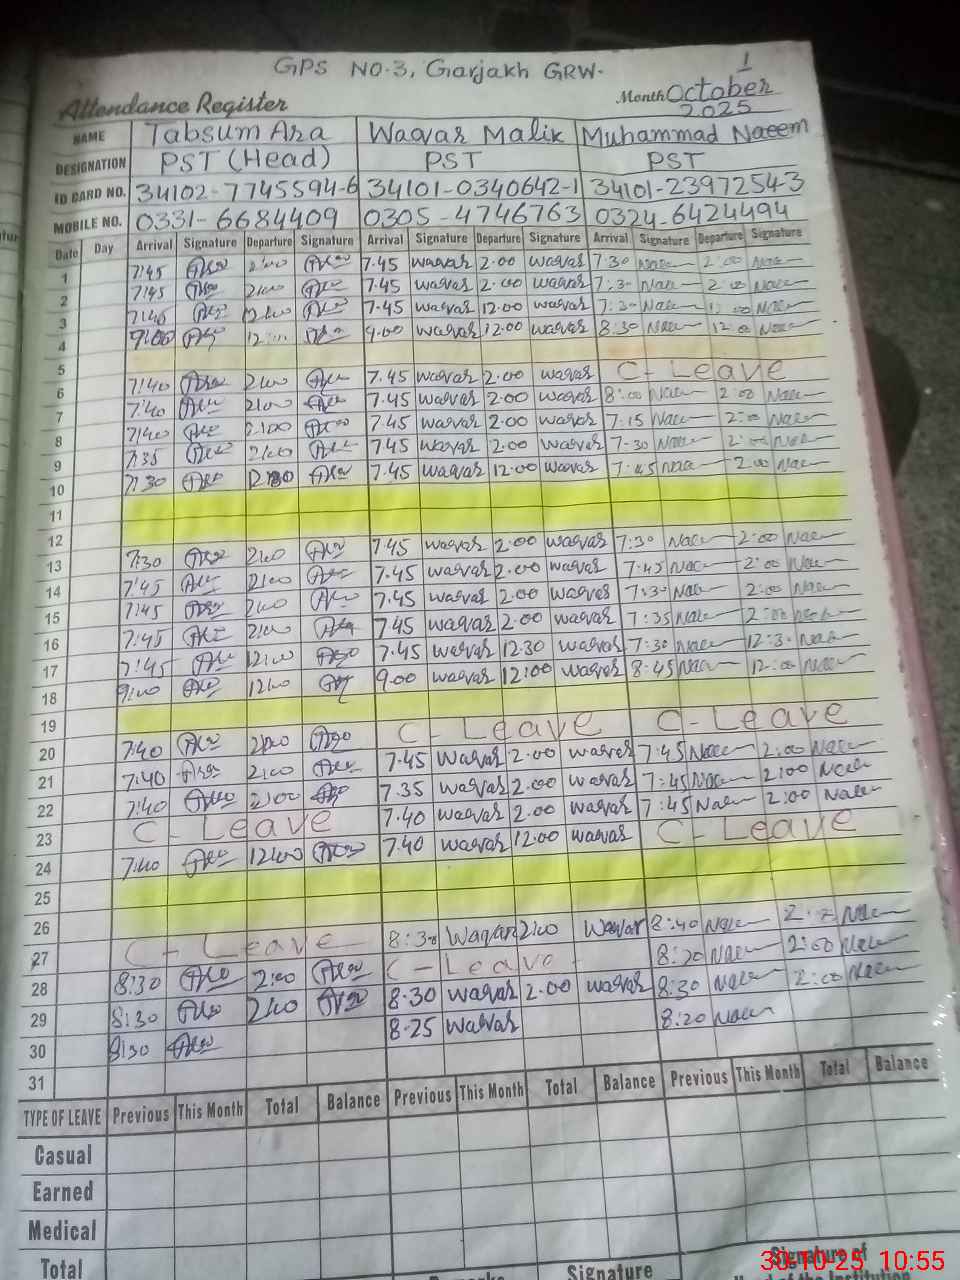 1
GPS NO.3, Garjakh GRW.
Attendance Register
Month October
2025
NAME Tabsum Ara Waqar Malik Muhammad Naeem
DESIGNATION PST (Head) PST PST
ID CARD NO. 34102-7745594-6 34101-0340642-1 34101-23972543
MOBILE NO. 0331-6684409 0305-4746763 0324-6424494
Date Day Arrival Signature Departure Signature Arrival Signature Departure Signature Arrival Signature Departure Signature
1 7:45 2:00 7.45 waqar 2.00 waqar 7:30 Naee 2:00 Naee
2 7:45 2:00 7.45 waqar 2.00 waqar 7:30 Naee 2:00 Naee
3 7:45 12:00 7.45 waqar 12.00 waqar 7:30 Naee Naee
4 9:00 12:00 9.00 waqar 12.00 waqar 8:30 Naee 12:00 Naee
5
6 7:40 2:00 7.45 waqar 2.00 waqar C-Leave
7 7:40 2:00 7.45 waqar 2.00 waqar 8:00 Naee 2:00 Naee
8 7:40 2:00 7.45 waqar 2.00 waqar 7:15 Naee 2:00 Naee
9 7:35 2:00 7.45 waqar 2.00 waqar 7:30 Naee 2:00 Naee
10 7:30 7.45 waqar 12.00 waqar 7:45 Naee 2:00 Naee
11
12
13 7:30 2:00 7.45 waqar 2.00 waqar 7:30 Naee 2:00 Naee
14 7:45 2:00 7.45 waqar 2.00 waqar 7:45 Naee 2:00 Naee
15 7:45 2:00 7.45 waqar 2.00 waqar 7:30 Naee 2:00 Naee
16 7:45 2:00 7.45 waqar 2.00 waqar 7:35 Naee 2:00 Naee
17 7:45 12:00 7.45 waqar 12.30 waqar 7:30 Naee 12:30 Naee
18 9:00 12:00 9.00 waqar 12:00 waqar 8:45 Naee 12:00 Naee
19
20 7:40 2:00 C-Leave C-Leave
21 7:40 2:00 7.45 waqar 2.00 waqar 7:45 Naee 2:00 Naee
22 7:40 2:00 7.35 waqar 2.00 waqar 7:45 Naee 2:00 Naee
23 C-Leave 7.40 waqar 2.00 waqar 7:45 Naee 2:00 Naee
24 7:40 12:00 7.40 waqar 12.00 waqar C-Leave
25
26
27 C-Leave 8:30 Waqar 2:00 Waqar 8:40 Naee Naee
28 8:30 2:00 C-Leave 8:20 Naee 2:00 Naee
29 8:30 2:00 8.30 waqar 2.00 waqar 8:30 Naee 2:00 Naee
30 8:30 8.25 waqar 8:20 Naee
31
TYPE OF LEAVE Previous This Month Total Balance Previous This Month Total Balance Previous This Month Total Balance
Casual
Earned
Medical
Total
Signature
Signature of
30-10-25 10:55